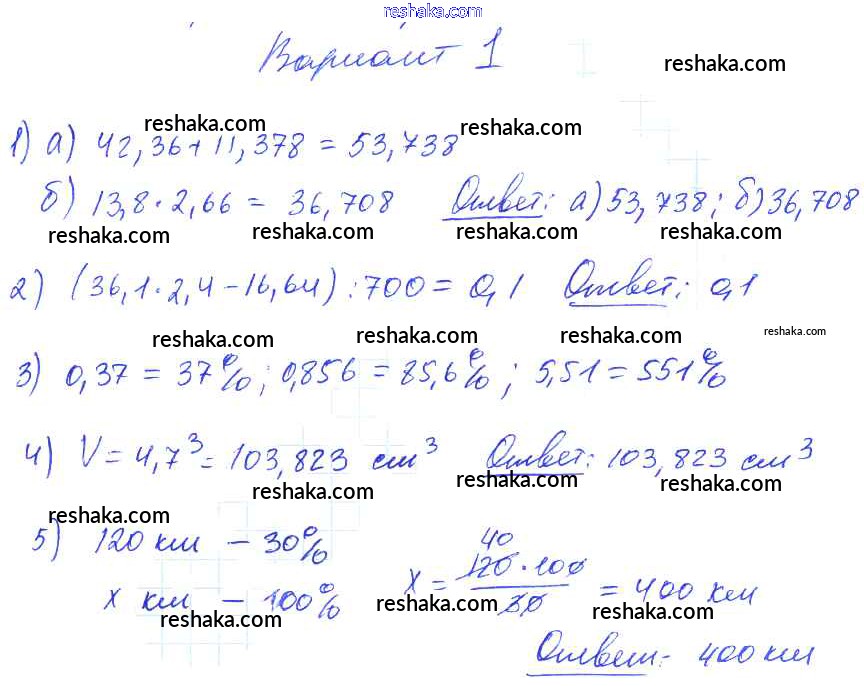 reshaka.com
Вариант 1 reshaka.com
reshaka.com reshaka.com
1) а) 42,36+11,378 = 53,738
б) 13,8·2,66 = 36,708 Ответ: а) 53,738; б) 36,708
reshaka.com reshaka.com reshaka.com
2) (36,1·2,4-16,64):700 = 0,1 Ответ: 0,1
reshaka.com reshaka.com reshaka.com reshaka.com
3) 0,37 = 37%; 0,856 = 85,6%; 5,51 = 551%
4) V = 4,7³ = 103,823 см³ Ответ: 103,823 см³
reshaka.com reshaka.com reshaka.com
reshaka.com
5) 120 км - 30%
x км - 100% x = 40 120·100 / 30 = 400 км
reshaka.com reshaka.com reshaka.com
Ответ: 400 км